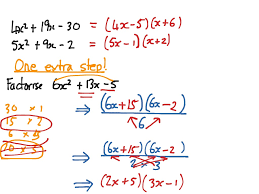 4x² + 19x - 30 = (4x-5)(x+6)
5x² + 9x - 2 = (5x-1)(x+2)
One extra step!
Factorise 6x² + 13x - 5
30 x 1
15 x 2
6 x 5
⇒ (6x+15)(6x-2)
6
⇒ (6x+15)(6x-2)
2 x 3
⇒ (2x+5)(3x-1)